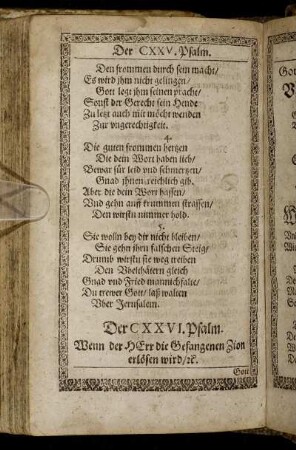 Der CXXV. Psalm.
Den frommen durch sein macht/
Es wird jhm nicht gelingen/
Gott legt jhm seinen pracht/
Sonst der Gerecht sein Hende
Zu letzt auch mit möcht wenden
Zur vngerechtigkeit.
4.
Die guten frommen hertzen
Die dein Wort haben lieb/
Bewar für leid vnd schmertzen/
Gnad jhnen reichlich gib.
Aber die dein Wort hassen/
Vnd gehn auff krummen strassen/
Den wirstu nimmer hold.
5.
Sie wolln bey dir nicht bleiben/
Sie gehn jhrn falschen Steig/
Drumb wirstu sie weg treiben
Den Vbelthätern gleich
Gnad vnd Fried mannichfalt/
Du trewer Gott/ laß walten
Vber Jerusalem.
Der CXXVI. Psalm.
Wenn der HErr die Gefangenen Zion
erlösen wird/ ꝛc.
Gott